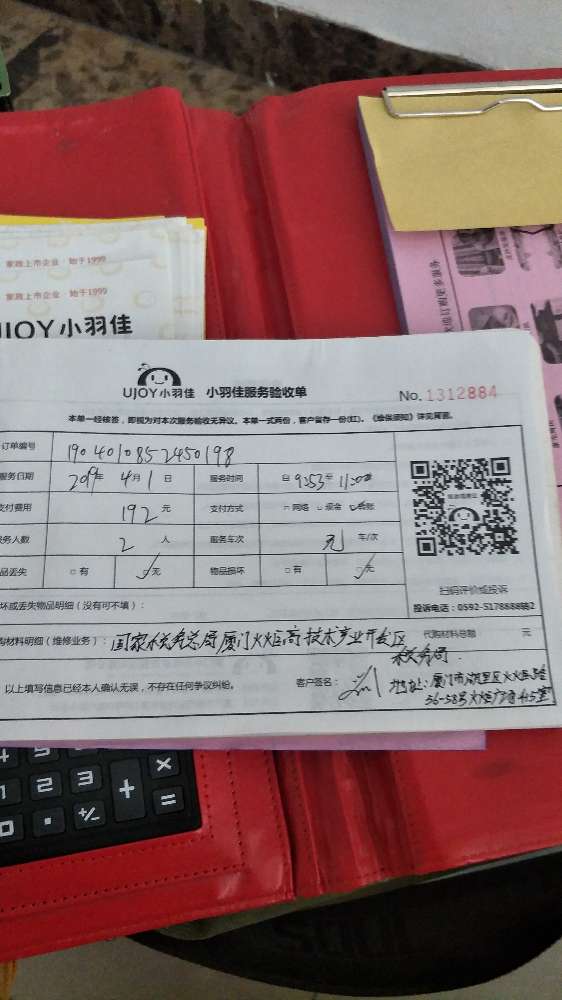 家政上市企业·始于1999
家政上市企业·始于1999
UJOY小羽佳
UJOY小羽佳 小羽佳服务验收单
No. 1312884
本单一经核签，即视为对本次服务验收无异议。本单一式两份，客户留存一份(红)。《维保须知》详见背面。
订单编号 1904010852450198
服务日期 2019年 4月 1日 服务时间 自 9:53 至 11:00
支付费用 192 元 支付方式 网络 现金 转账
务人数 2 人 服务车次 无 车/次
品丢失 有 无 物品损坏 有 无
扫码评价或投诉
坏或丢失物品明细（没有可不填）：
投诉电话：0592-5178888转2
购材料明细（维修业务）：国家税务总局厦门火炬高技术产业开发区 代购材料总额 元
税务局
以上填写信息已经本人确认无误，不存在任何争议纠纷。 客户签名：
地址：厦门市湖里区火炬路
56-58号火炬广场